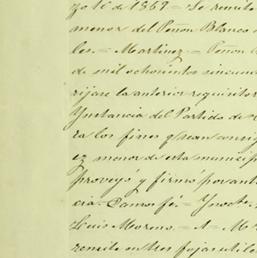 zo 16 de 1869 = Se remite
menor del Peñon Blanco
les. = Martinez = Peñon
de mil ochocientos cincuen
rijase la anterior requisitor
Instancia del Partido de
ra los fines q sean consig
ez menor de esta municip
proveyó y firmó por ante
cia. Damos fé. =
Luis Moreno. = A = M
remite en tres fojas utile